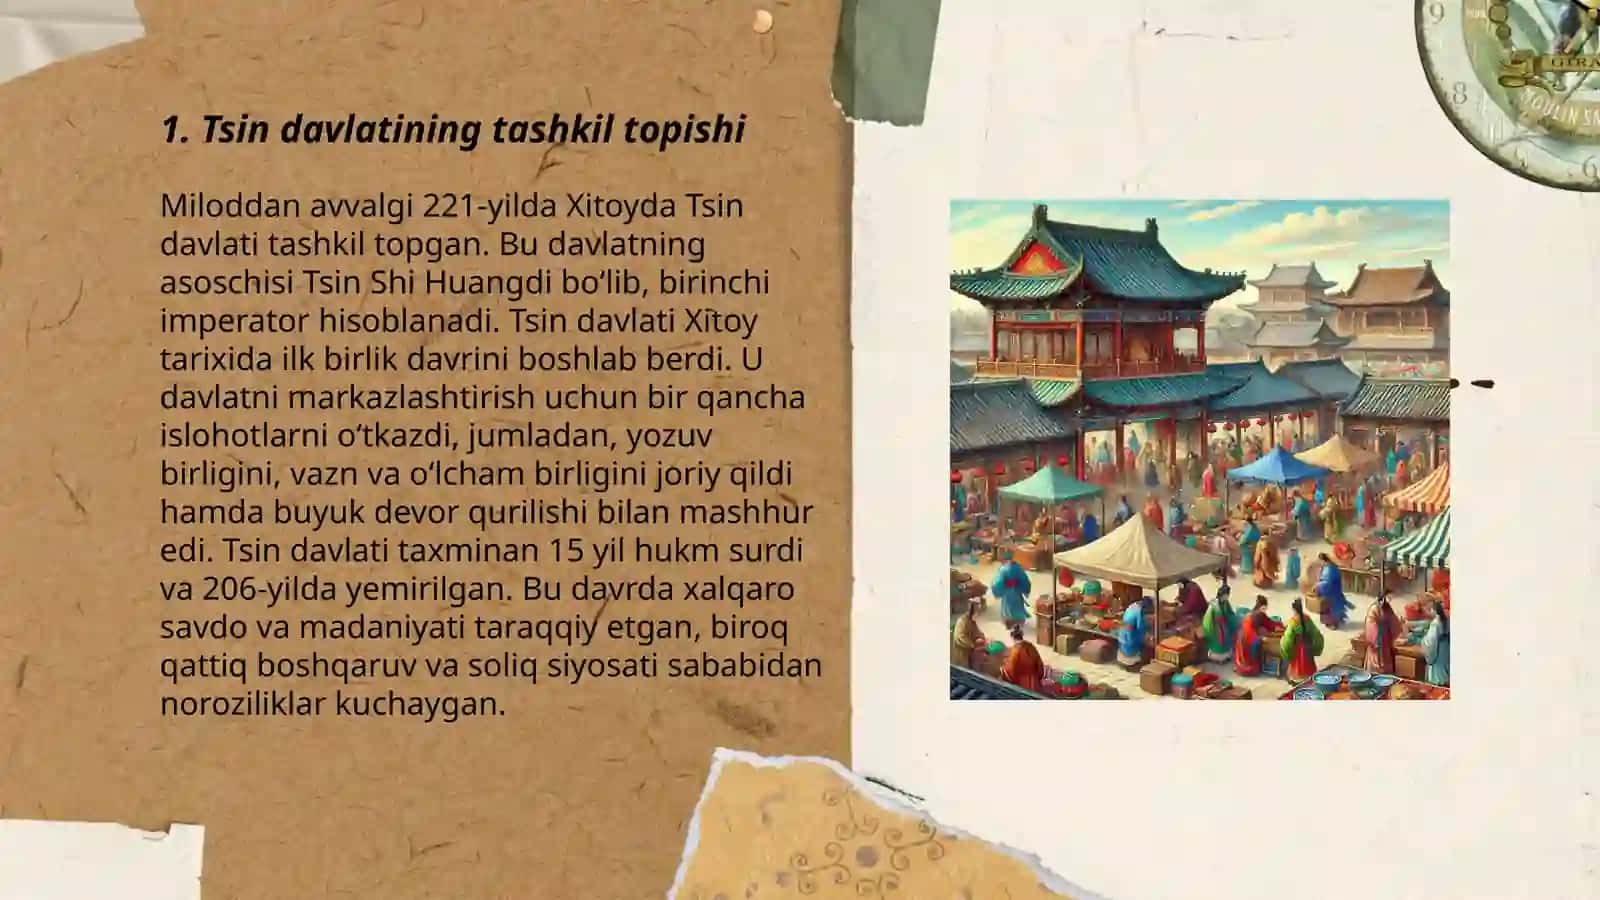 1. Tsin davlatining tashkil topishi
Miloddan avvalgi 221-yilda Xitoyda Tsin
davlati tashkil topgan. Bu davlatning
asoschisi Tsin Shi Huangdi bo‘lib, birinchi
imperator hisoblanadi. Tsin davlati Xitoy
tarixida ilk birlik davrini boshlab berdi. U
davlatni markazlashtirish uchun bir qancha
islohotlarni o‘tkazdi, jumladan, yozuv
birligini, vazn va o‘lcham birligini joriy qildi
hamda buyuk devor qurilishi bilan mashhur
edi. Tsin davlati taxminan 15 yil hukm surdi
va 206-yilda yemirilgan. Bu davrda xalqaro
savdo va madaniyati taraqqiy etgan, biroq
qattiq boshqaruv va soliq siyosati sababidan
noroziliklar kuchaygan.
9
8
6
MOULIN